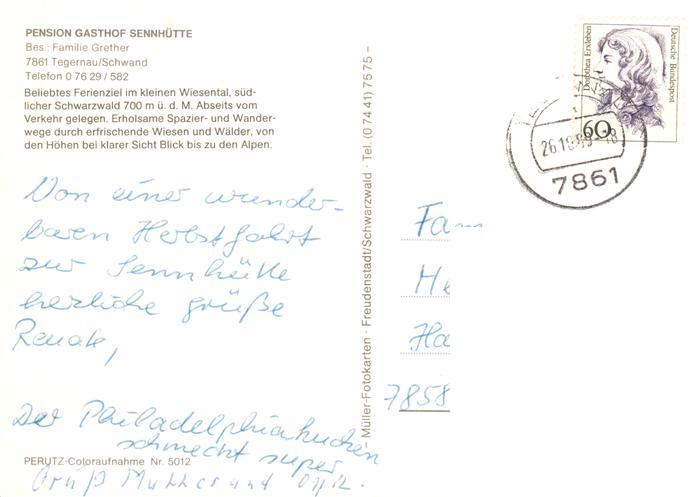 PENSION GASTHOF SENNHÜTTE
Bes.: Familie Grether
7861 Tegernau/Schwand
Telefon 0 76 29 / 582
Beliebtes Ferienziel im kleinen Wiesental, süd-
licher Schwarzwald 700 m ü. d. M. Abseits vom
Verkehr gelegen. Erholsame Spazier- und Wander-
wege durch erfrischende Wiesen und Wälder, von
den Höhen bei klarer Sicht Blick bis zu den Alpen.
Von einer wunder-
baren Herbstfahrt
zur Sennhütte
herzliche grüße
Renate,
Der Philadelphiakuchen
schmeckt super
PERUTZ-Coloraufnahme Nr. 5012
Gruß Mutter und
– Müller-Fotokarten · Freudenstadt/Schwarzwald · Tel. (0 74 41) 75 75 –
Dorothea Erxleben
Deutsche Bundespost
60
7861
Fam
He
Ha
7858